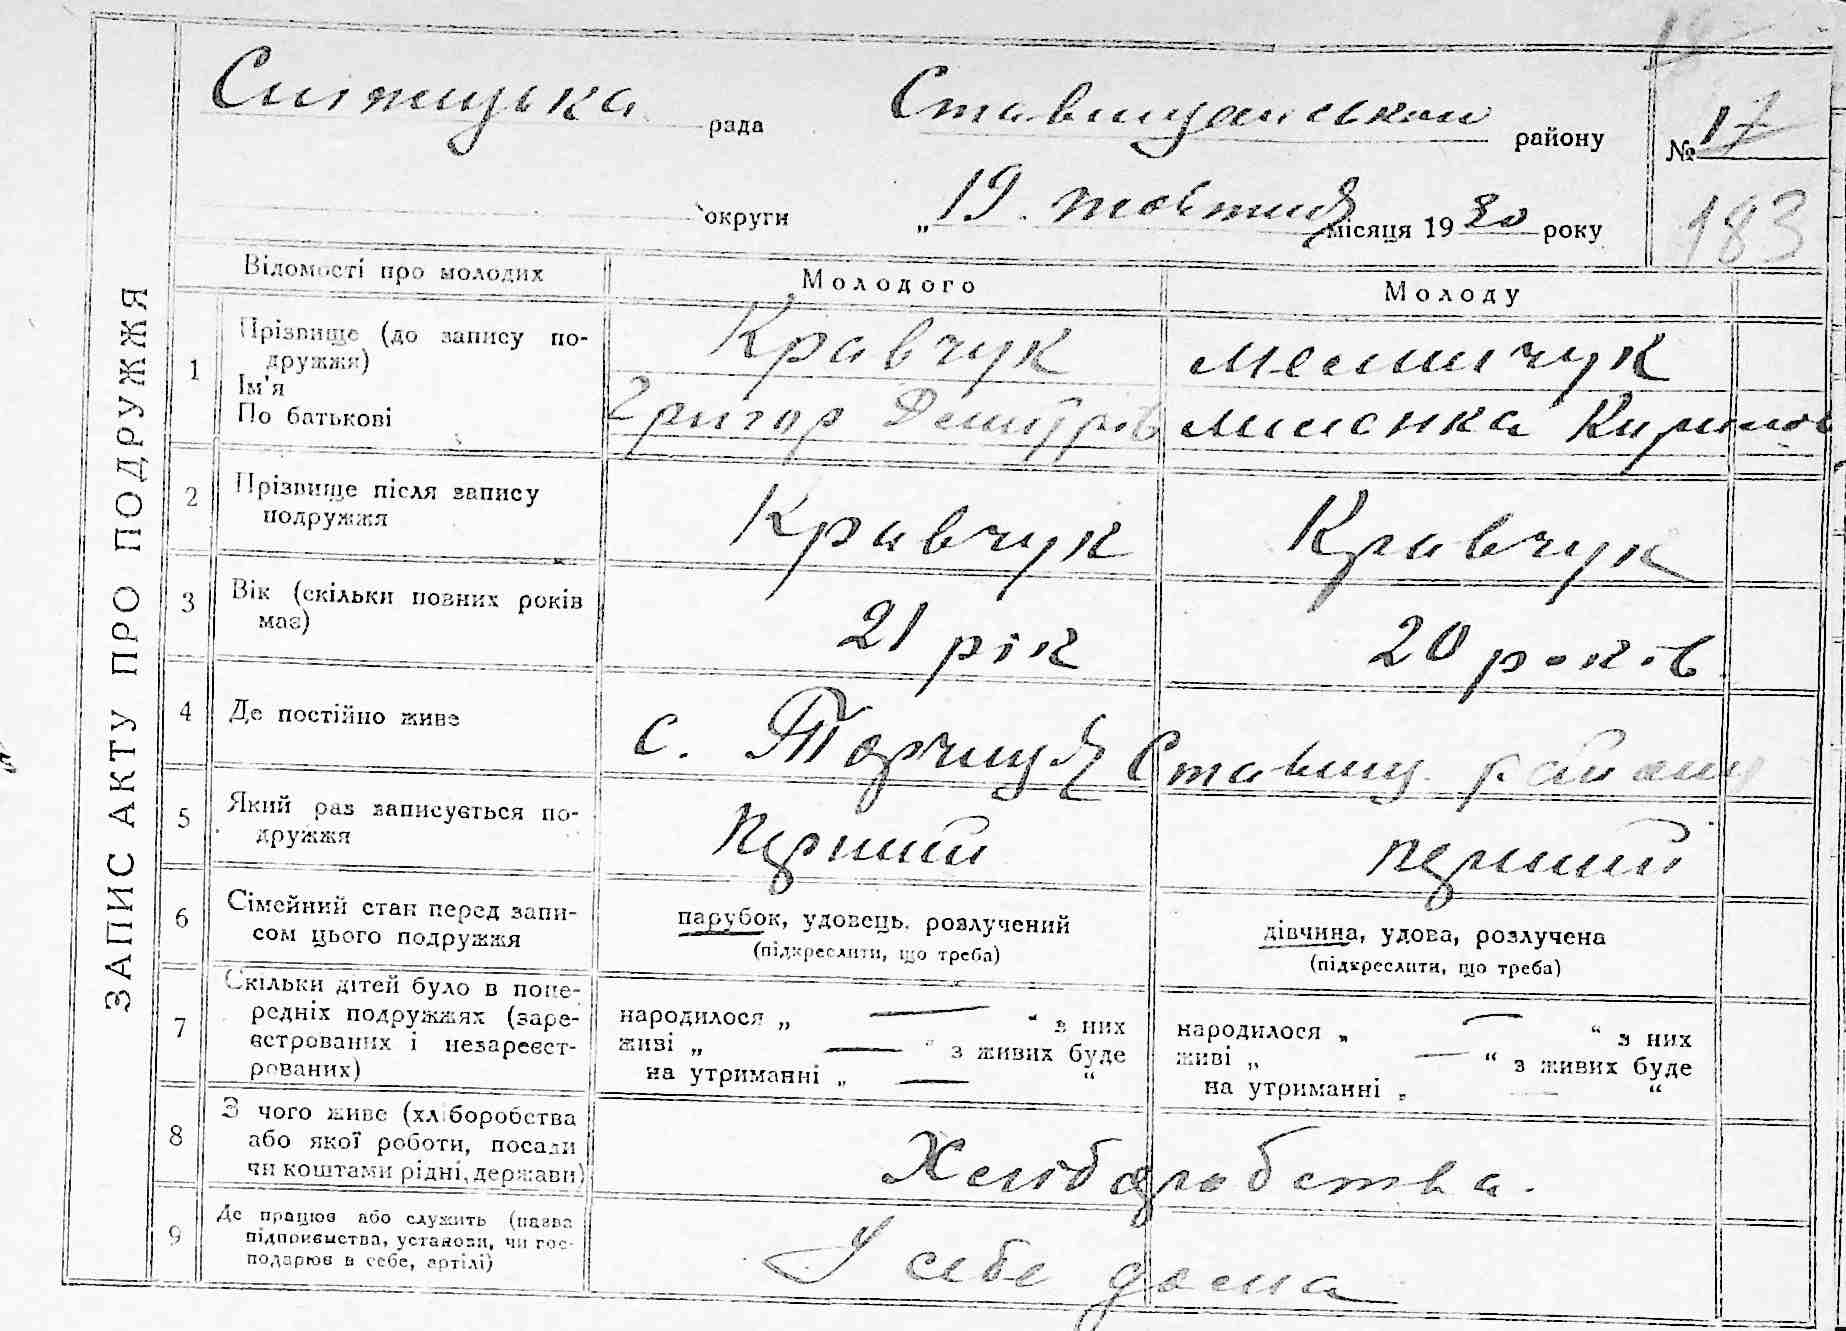 18
рада Ставищанськом району № 17
округи „ 19 жовтня місяця 19 30 року 183
ЗАПИС АКТУ ПРО ПОДРУЖЖЯ
Відомості про молодих Молодого Молоду
1 Прізвище (до запису по-
дружжя) Кравчук Мельничук
Ім'я
По батькові Григор Дмитрів Милонка Кирилов
2 Прізвище після запису
подружжя Кравчук Кравчук
3 Вік (скільки повних років
має) 21 рік 20 років
4 Де постійно живе с. Торчиця Ставищ. району
5 Який раз записується по-
дружжя перший перший
6 Сімейний стан перед запи-
сом цього подружжя парубок, удовець, розлучений дівчина, удова, розлучена
(підкреслити, що треба) (підкреслити, що треба)
7 Скільки дітей було в попе-
редніх подружжях (заре-
єстрованих і незареєст-
рованих) народилося „ — “ з них народилося „ — “ з них
живі „ — “ з живих буде живі „ — “ з живих буде
на утриманні „ — “ на утриманні „ — “
8 З чого живе (хліборобства
або якої роботи, посади
чи коштами рідні, держави) Хліборобства.
9 Де працює або служить (назва
підприємства, установи, чи гос-
подарює в себе, артілі) У себе дома